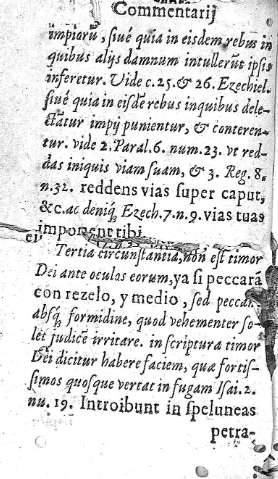 Commentarij
impiorũ, siué quia in eisdem rebus in
quibus alijs damnum intullerũt ipsis
inferetur. Vide c. 25. & 26. Ezechiel.
siué quia in eisdē rebus inquibus dele-
ctãtur impij punientur, & conteren-
tur. vide 2. Paral. 6. num. 23. vt red-
das iniquis viam suam, & 3. Reg. 8.
n. 32. reddens vias super caput,
&c. ac deniq; Ezech. 7. n. 9. vias tuas
imponent tibi.
Tertia circunstantia, non est timor
Dei ante oculos eorum, ya si peccarã
con rezelo, y medio, sed peccan
absq; formidine, quod vehementer so-
let judicē irritare. in scriptura timor
Dei dicitur habere faciem, qua fortis-
simos quosque vertat in fugam Isai. 2.
nu. 19. Introibunt in speluncas
petra-